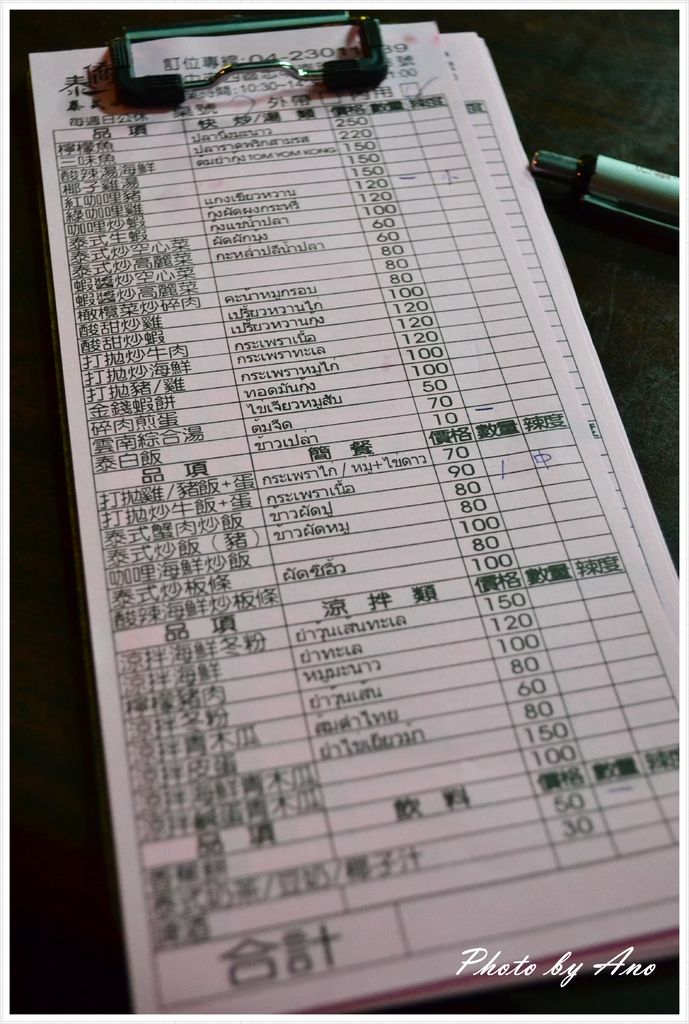 訂位專線:04-2301
每週日公休 桌號 外帶 內用
品項 快炒/湯類 價格 數量 辣度
檸檬魚 ปลานึ่งมะนาว 250
三味魚 ปลาราดพริกสามรส 220
酸辣湯海鮮 ต้มยำกุ้ง TOM YOM KONG 150
椰子雞湯 150
紅咖哩豬 150
綠咖哩雞 แกงเขียวหวาน 120
咖哩炒蝦 กุ้งผัดผงกระหรี่ 120
泰式生蝦 กุ้งแช่น้ำปลา 100
泰式炒空心菜 ผัดผักบุ้ง 60
泰式炒高麗菜 กะหล่ำปลีน้ำปลา 60
蝦醬炒空心菜 80
蝦醬炒高麗菜 80
橄欖菜炒碎肉 คะน้าหมูกรอบ 100
酸甜炒雞 เปรี้ยวหวานไก่ 120
酸甜炒蝦 เปรี้ยวหวานกุ้ง 120
打拋炒牛肉 กระเพราเนื้อ 120
打拋炒海鮮 กระเพราทะเล 100
打拋豬/雞 กระเพราหมูไก่ 100
金錢蝦餅 ทอดมันกุ้ง
碎肉煎蛋 ไขเจียวหมูสับ 50
雲南綜合湯 ต้มจืด 70
泰白飯 ข้าวเปล่า 10
品項 簡餐 價格 數量 辣度
打拋雞/豬飯+蛋 กระเพราไก่ / หมู+ไขดาว 70
打拋炒牛飯+蛋 กระเพราเนื้อ 90
泰式蟹肉炒飯 ข้าวผัดปู 80
泰式炒飯(豬) ข้าวผัดหมู 80
咖哩海鮮炒飯 100
泰式炒板條 ผัดซีอิ้ว 80
酸辣海鮮炒板條 100
品項 涼拌類 價格 數量 辣度
涼拌海鮮冬粉 ยำวุ้นเส้นทะเล 150
涼拌海鮮 ยำทะเล 120
檸檬豬肉 หมูมะนาว 100
涼拌冬粉 ยำวุ้นเส้น 80
涼拌青木瓜 ส้มตำไทย 60
涼拌皮蛋 ยำไข่เยี่ยวม้า 80
涼拌海鮮青木瓜 150
涼拌鹹蛋青木瓜 100
品項 飲料 價格 數量 辣度
50
泰式奶茶/豆奶/椰子汁 30
啤酒
合計
Photo by Ano